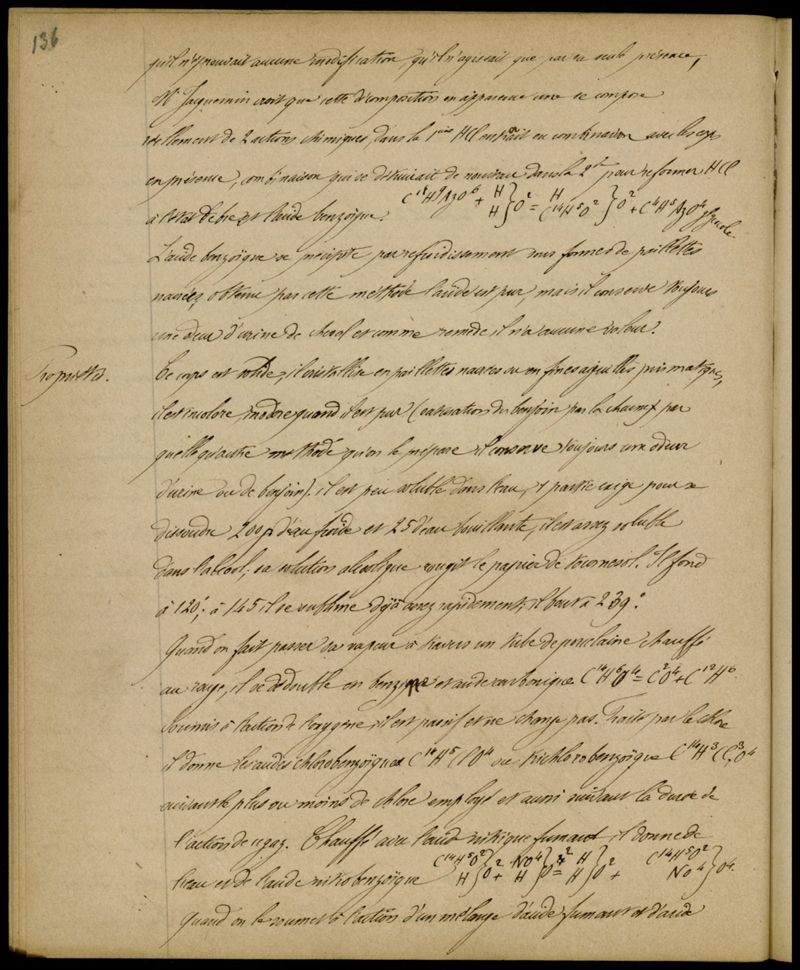 136
qu'il n'éprouvait aucune modification, qu'il n'agissait que par sa seule présence,
Mr Jacquemin croit que cette décomposition en apparence une se compose
réellement de 2 actions chimiques, dans la 1ière HCl entrait en combinaison avec les corps
en présence, combinaison qui se détruirait de nouveau dans la 2de pour reformer HCl
à l'état libre et l'acide benzoïque. C18H9AzO6 + H H}O2 = H C14H5O2}O2 + C4H5AzO4 glycocolle.
L'acide benzoïque se précipite par refroidissement sous forme de paillettes
nacrées, obtenu par cette méthode l'acide est pur, mais il conserve toujours
une odeur d'urine de cheval et comme remède il n'a aucune valeur.
Propriétés.
Ce corps est solide, il cristallise en paillettes nacrées ou en fines aiguilles prismatiques,
il est incolore, inodore quand il est pur (extraction du benjoin par la chaux) par
quelqu'autre méthode qu'on le prépare il conserve toujours une odeur
d'urine ou de benjoin). il est peu soluble dans l'eau, 1 partie exige pour se
dissoudre 200 p d'eau froide et 25 d'eau bouillante, il est assez soluble
dans l'alcool; sa solution alcoolique rougit le papier de tournesol. Il fond
à 120°; à 145 il se sublime déjà assez rapidement; il bout à 239°.
Quand on fait passer sa vapeur à travers un tube de porcelaine chauffé
au rouge, il se dédouble en benzine et acide carbonique C14H6O4 = C2O4 + C12H6.
Soumis à l'action de l'oxygène, il est passif et ne change pas. Traité par le chlore
il donne les acides chlorobenzoïques C14H5ClO4 ou trichlorobenzoïque C14H3Cl3O4
suivant le plus ou moins de chlore employé et aussi suivant la durée de
l'action de ce gaz. Chauffé avec l'acide nitrique fumant, il donne de
l'eau et de l'acide nitrobenzoïque C14H5O2 H}O2 + NO4 H}O2 = H H}O2 + C14H5O2 NO4}O4.
Quand on le soumet à l'action d'un mélange d'acide fumant et d'acide